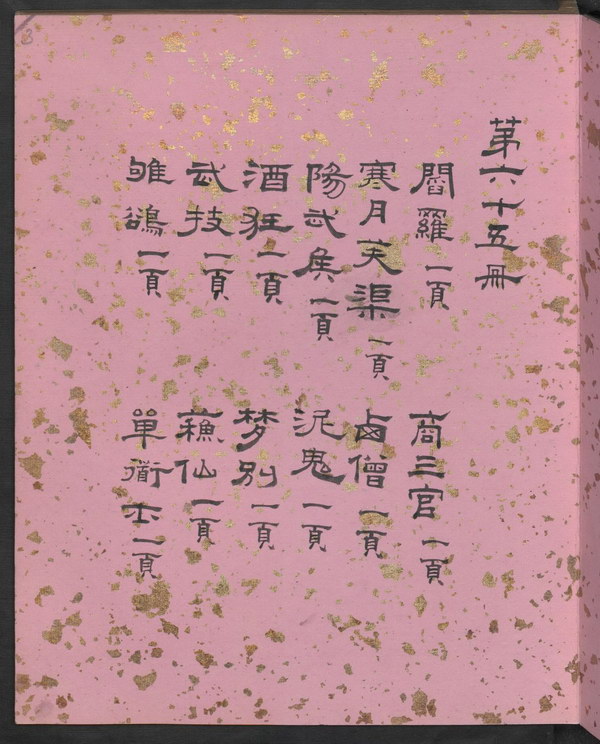 3
第六十五冊
閻羅一頁
寒月芙渠一頁
陽武矦一頁
酒狂一頁
武技一頁
雊鵒一頁
商三官一頁
卥僧一頁
泥鬼一頁
梦别一頁
蘓仙一頁
單衟士一頁